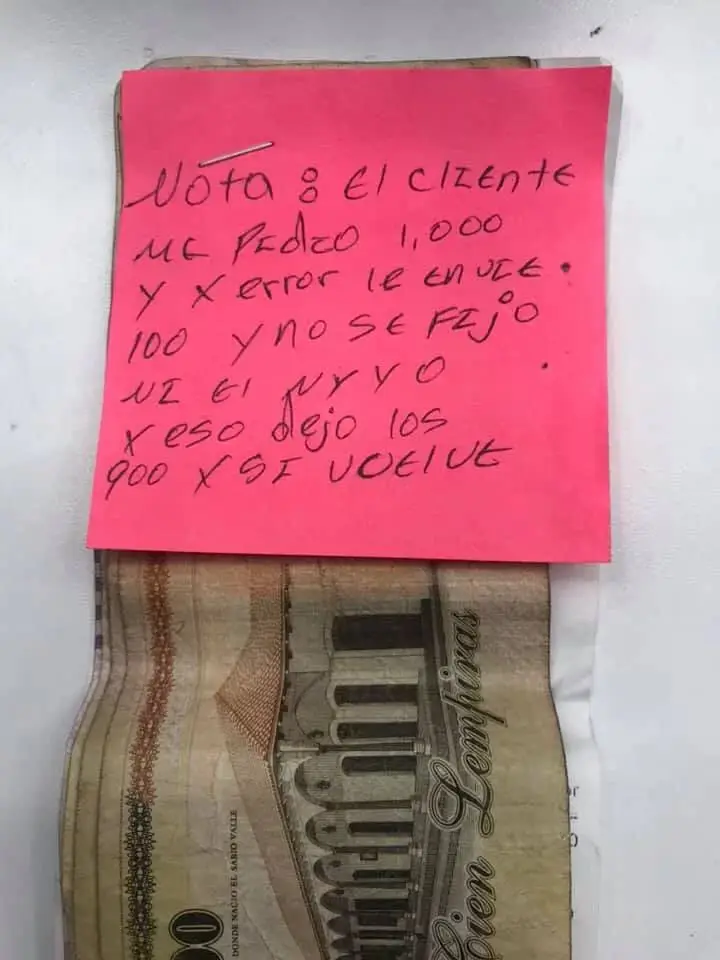 Nota: El cliente
me Pidio 1,000
y x error le envie.
100 y no se Fijo
Ni El Ny yo
x eso dejo los
900 x si vuelve
Cien Lempiras
DONDE NACIO EL SABIO VALLE
00